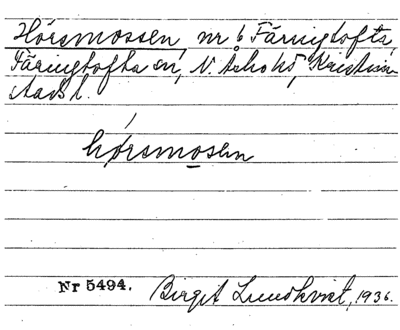 Hörsmossen, nr 6 Färingtofta,
Färingtofta sn, N. Åsbo hd, Kristian-
stads l.
hórsmosen
Nr 5494. Birgit Lundkvist, 1936.